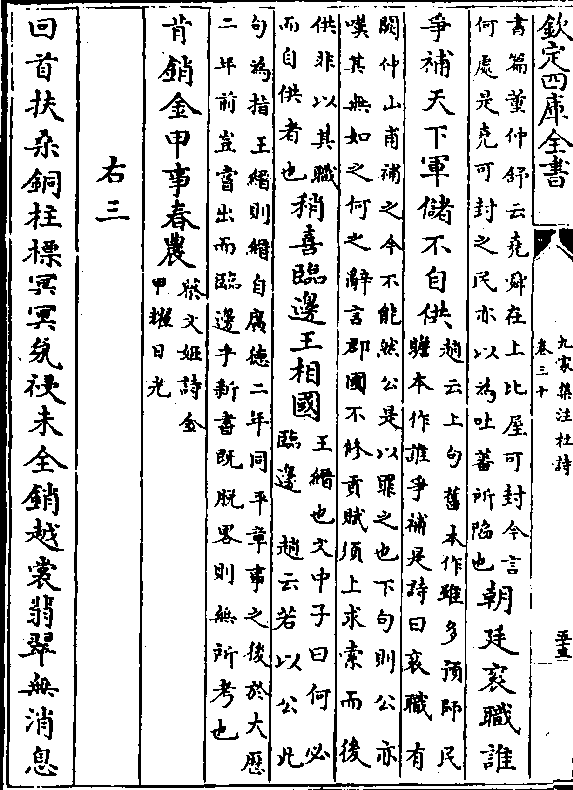 欽定四庫全書
九家集注杜詩
卷三十
書篇董仲舒云堯舜在上比屋可封今言
何處是堯可封之民亦以為吐蕃所陷也
朝廷袞職誰
爭補天下軍儲不自供
趙云上句舊本作雖多預師民
瞻本作誰爭補是詩曰袞職有
闕仲山甫補之今不能然公是以罪之也下句則公亦
嘆其無如之何之辭言郡國不修貢賦須上求索而後
供非以其職
而自供者也
稍喜臨邊王相國
王縉也文中子曰何必
臨邊 趙云若以公此
句為指王縉則縉自廣德二年同平章事之後於大歷
二年前豈嘗出而臨邊乎新書既脫畧則無所考也
肯銷金甲事春農
蔡文姬詩金
甲耀日光
右三
回首扶桑銅柱標冥冥氛祲未全銷越裳翡翠無消息